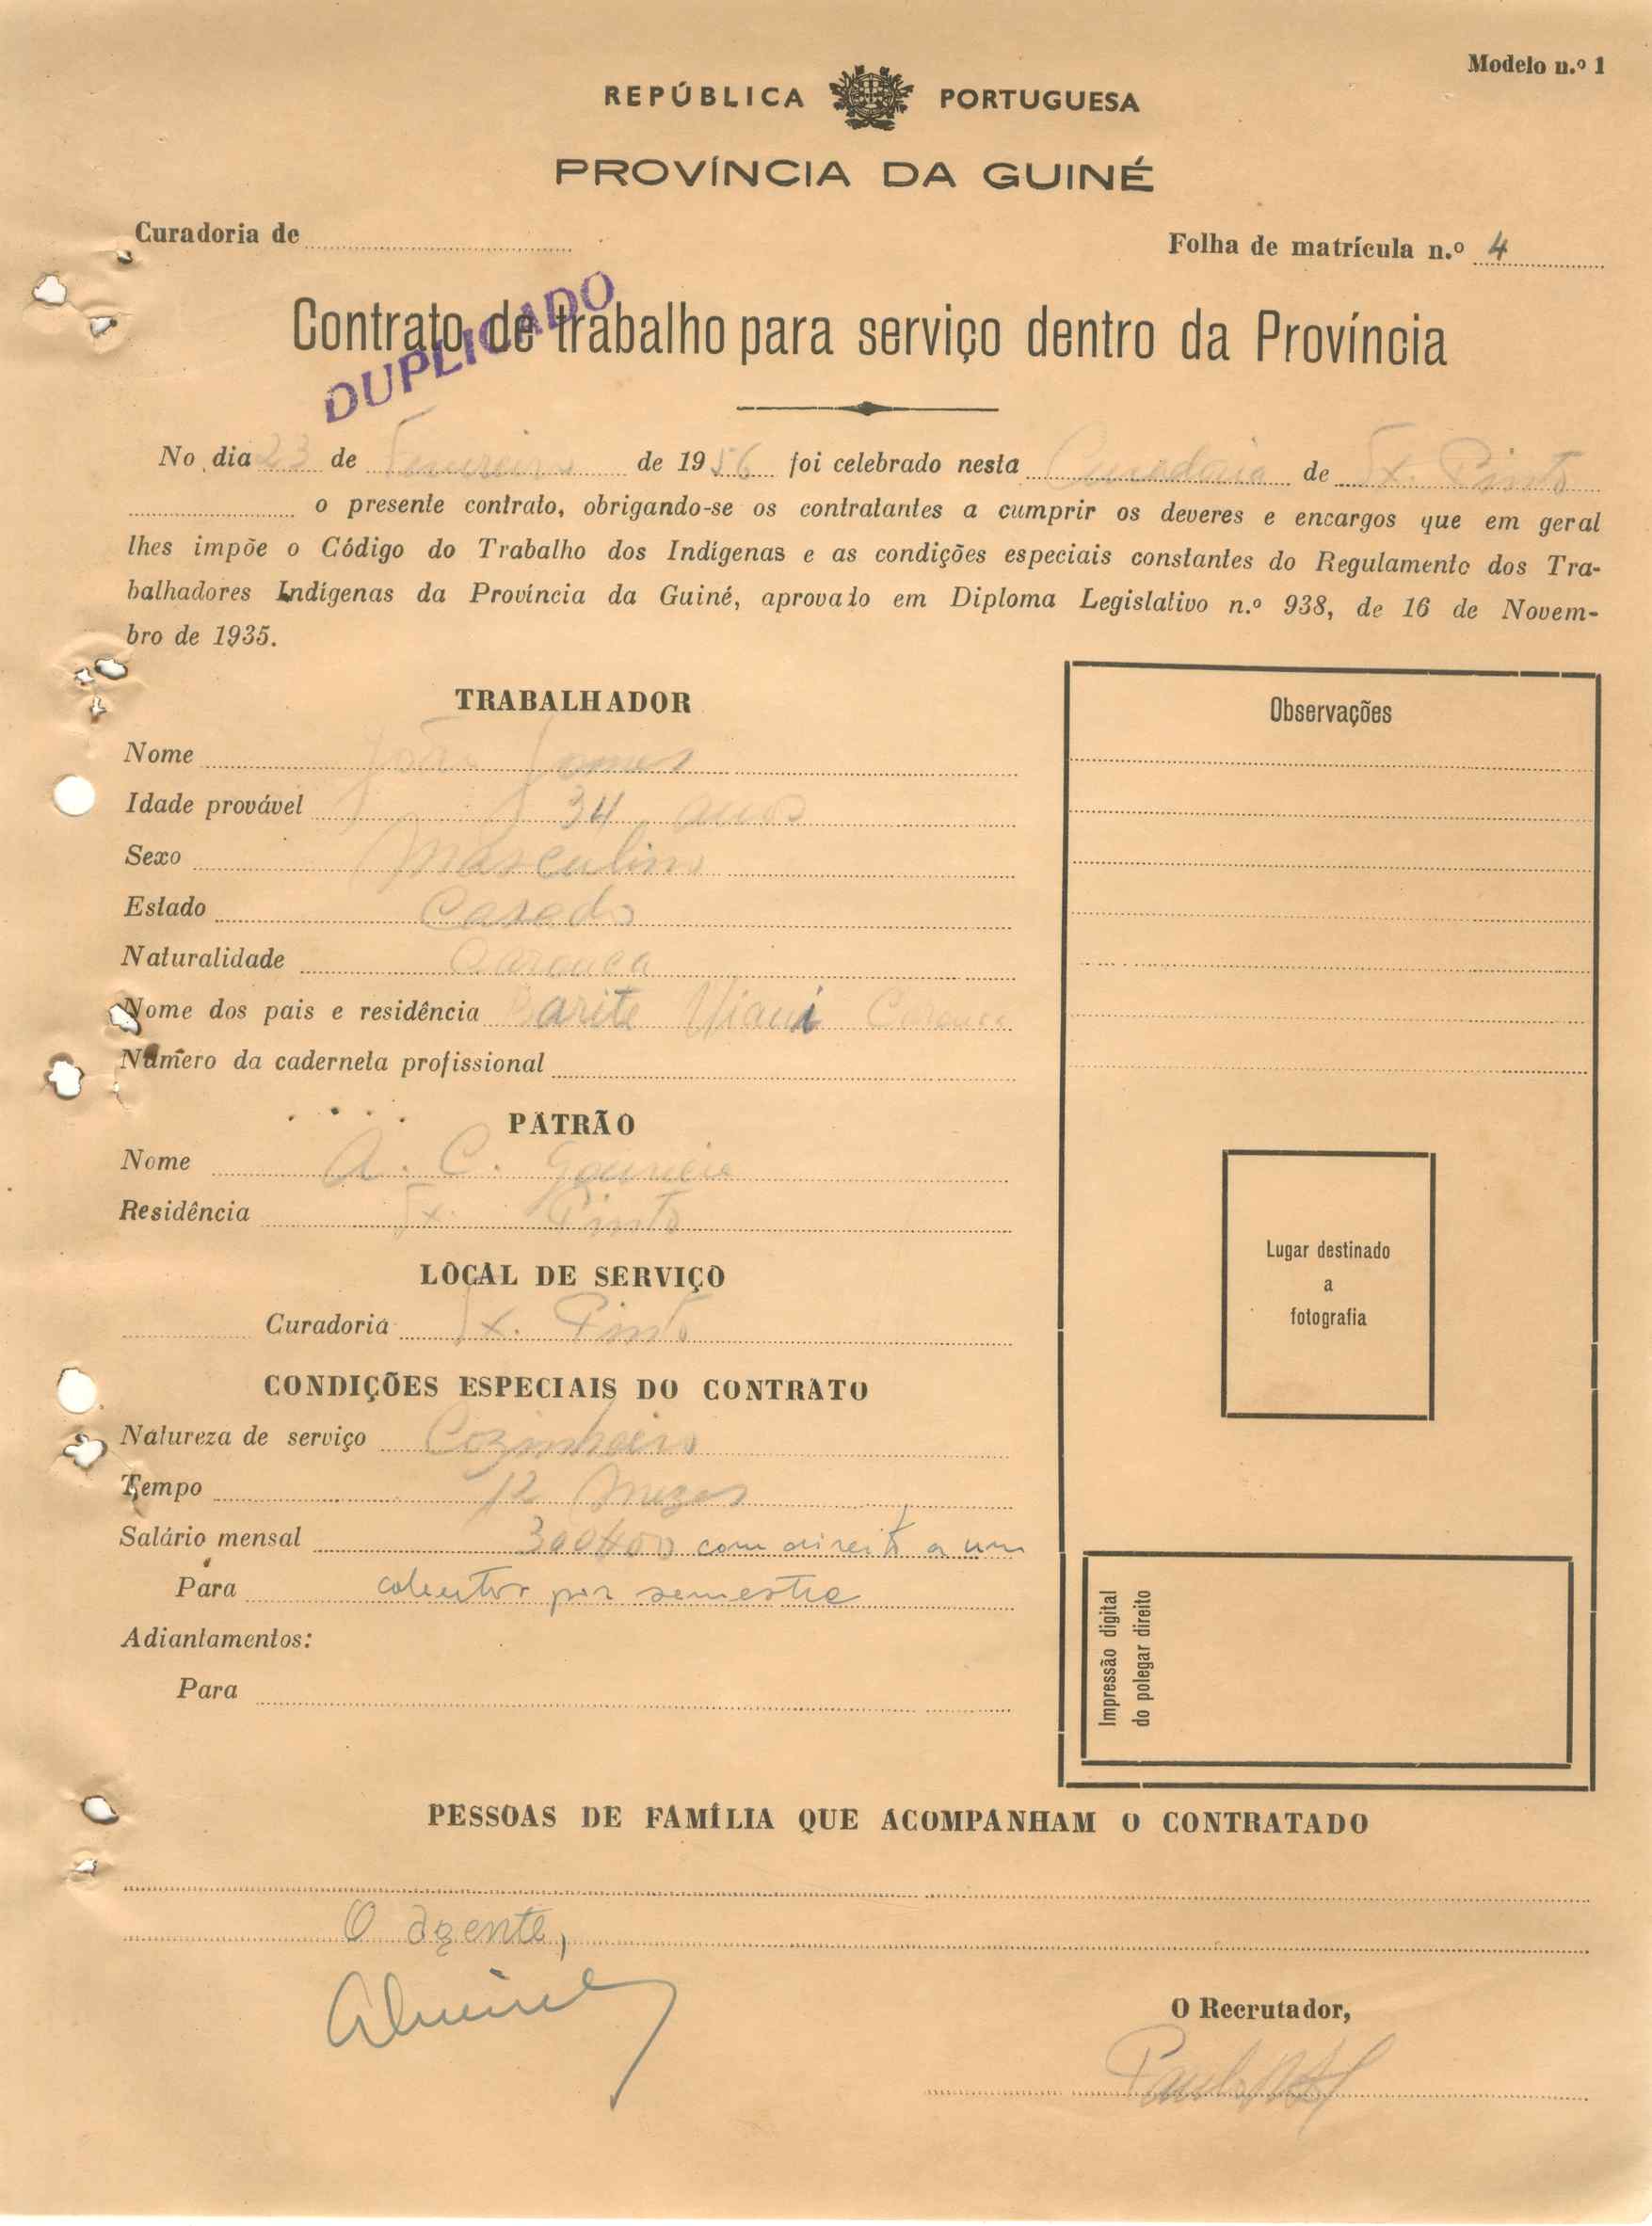 Modelo n.º 1
REPÚBLICA PORTUGUESA
PROVÍNCIA DA GUINÉ
Curadoria de
Folha de matrícula n.º 4
Contrato de trabalho para serviço dentro da Província
DUPLICADO
No dia 23 de Fevereiro de 1956 foi celebrado nesta Curadoria de Tx. Pinto
o presente contrato, obrigando-se os contratantes a cumprir os deveres e encargos que em geral
lhes impõe o Código do Trabalho dos Indígenas e as condições especiais constantes do Regulamento dos Tra-
balhadores Indígenas da Província da Guiné, aprovado em Diploma Legislativo n.º 938, de 16 de Novem-
bro de 1935.
TRABALHADOR
Nome João Gomes
Idade provável 34 anos
Sexo Masculino
Estado Casado
Naturalidade
Nome dos pais e residência
Número da caderneta profissional
PATRÃO
Nome A. C. Gouveia
Residência Tx. Pinto
LOCAL DE SERVIÇO
Curadoria Tx. Pinto
CONDIÇÕES ESPECIAIS DO CONTRATO
Natureza de serviço Cozinheiro
Tempo 12 mezes
Salário mensal 300$00 com direito a um
Para cobertor por semestre
Adiantamentos:
Para
Observações
Lugar destinado
a
fotografia
Impressão digital
do polegar direito
PESSOAS DE FAMÍLIA QUE ACOMPANHAM O CONTRATADO
O agente,
O Recrutador,